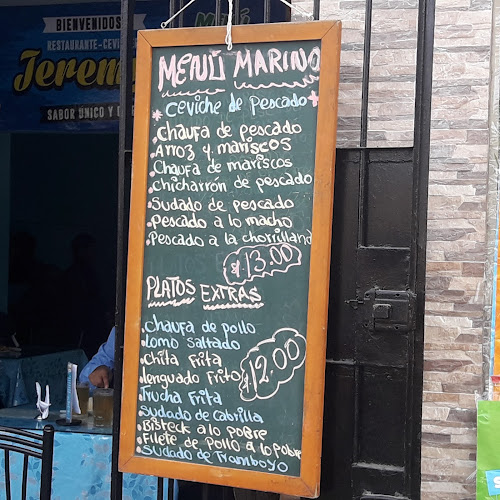 BIENVENIDOS
RESTAURANTE-CEVI
Jerem
SABOR UNICO Y
MENÚ MARINO
*CEVICHE DE PESCADO*
.Chaufa de pescado
.Arroz y mariscos
.Chaufa de mariscos
.Chicharrón de pescado
.Sudado de pescado
.Pescado a lo macho
.Pescado a la chorrillana
S/13.00
PLATOS EXTRAS
.Chaufa de pollo
.Lomo saltado
.Chita frita
.lenguado frito
S/12.00
.Trucha frita
.Sudado de cabrilla
.Bisteck a lo pobre
.Filete de pollo a lo pobre
.Sudado de tramboyo